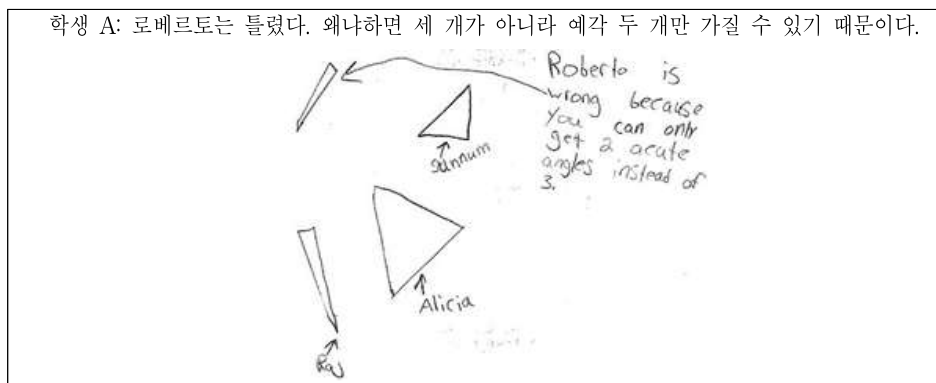 학생 A: 로베르토는 틀렸다. 왜냐하면 세 개가 아니라 예각 두 개만 가질 수 있기 때문이다.
Roberto is
wrong because
you can only
get 2 acute
angles instead of
3.
Sunnum
Alicia
Raj